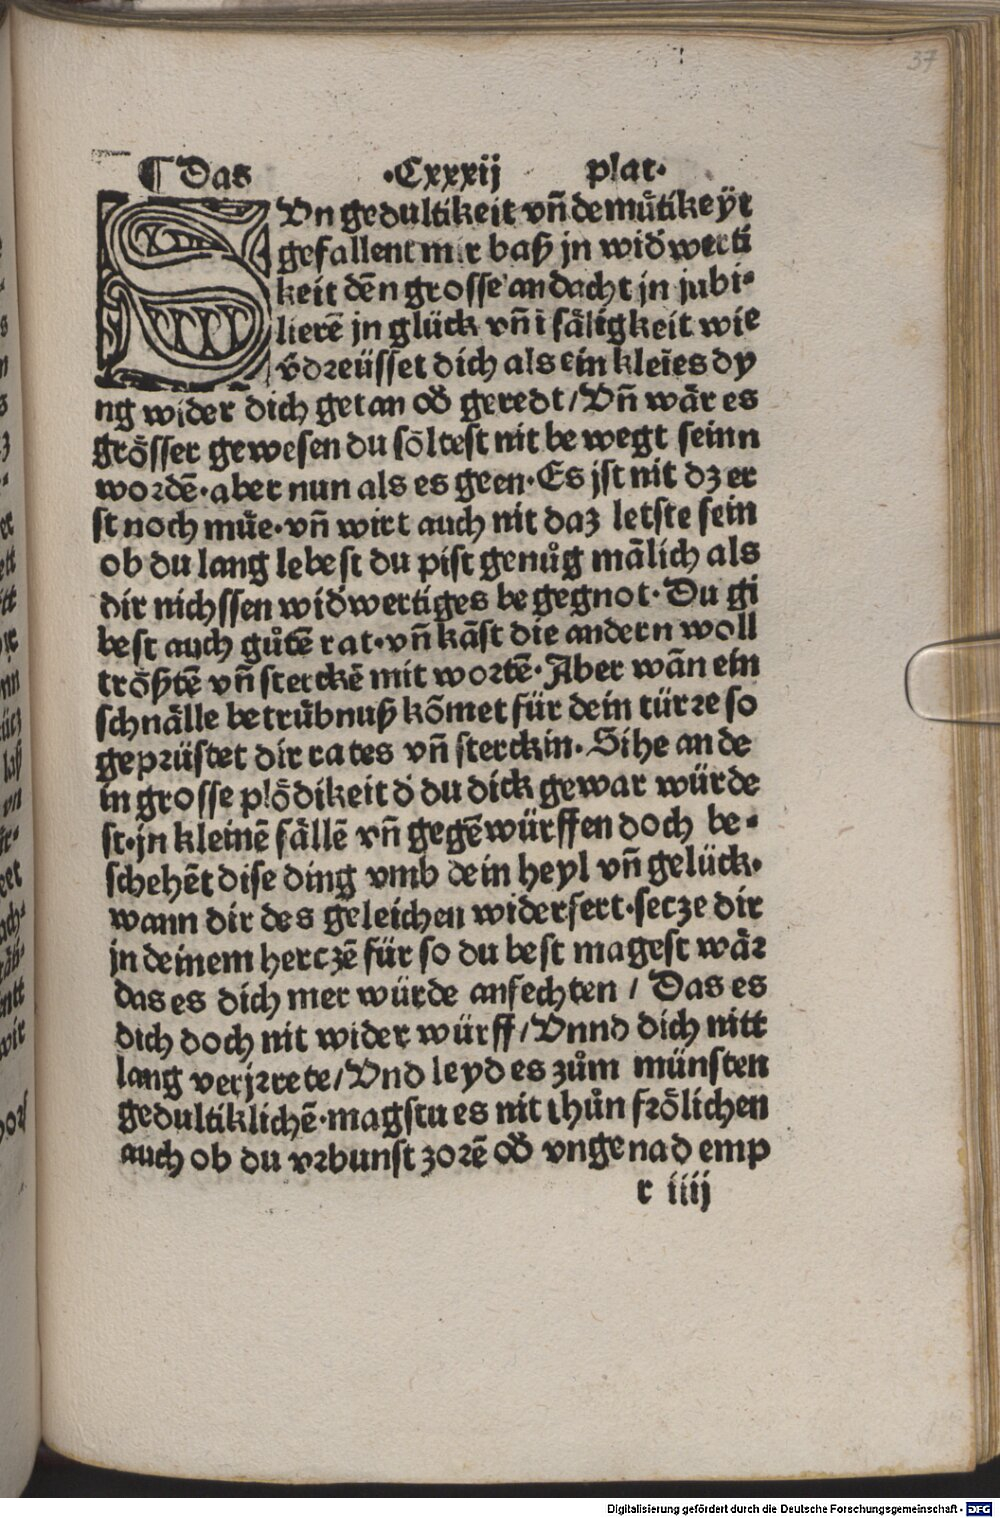 37
¶ Das ·Cxxxij plat·
SVn gedultikeit vn̄ demuͤtikeÿt
gefallent mir baß jn wid̄werti
keit dēn grosse andacht jn jubi-
lierē jn glück vn̄ ī sāligkeit wie
v̄dreüsset dich als ein kleīes dy
ng wider dich getan od̄ geredt / Vn̄ wār es
grōsser gewesen du sōltest nit be wegt seinn
wordē· aber nun als es geen· Es jst nit dz er
st noch mue· vn̄ wirt auch nit daz letste sein
ob du lang lebest du pist genůg mālich als
dir nichssen wid̄wertiges be gegnot· Du gi
best auch gůtē rat· vn̄ kāst die andern woll
trōßtē vn̄ sterckē mit wortē· Aber wān ein
schnālle betrübnuß kōmet für dein türre so
geprüstet dir rates vn̄ sterckin· Sihe an de
in grosse plōdikeit d̄ du dick gewar würde
st· jn kleinē fāllē vn̄ gegēwürffen doch be-
schehēt dise ding vmb dein heyl vn̄ gelück·
wann dir des geleichen widerfert· setze dir
jn deinem herczē für so du best magest wār
das es dich mer würde anfechten / Das es
dich doch nit wider würff / Vnnd dich nitt
lang verjrrete / Vnd leyd es zům münsten
gedultiklichē· magstu es nit thůn frōlichen
auch ob du vrbunst zorē od̄ vngenad emp
r iiij
Digitalisierung gefördert durch die Deutsche Forschungsgemeinschaft - DFG